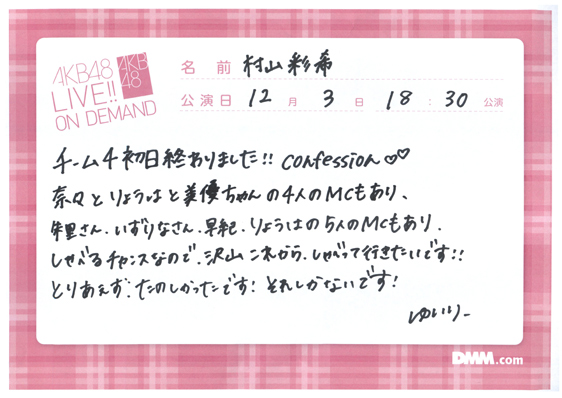 AKB48
LIVE!!
ON DEMAND
AKB
48
名前 村山彩希
公演日 12月 3日 18:30公演
チーム4初日終わりました!! confession♡♡
奈々とりょうはと美優ちゃんの4人のMCもあり、
朱里さん、いずりなさん、早紀、りょうはの5人のMCもあり、
しゃべるチャンスなので、沢山これから、しゃべって行きたいです!!
とりあえず、たのしかったです! それしかないです!
ゆいりー
DMM.com